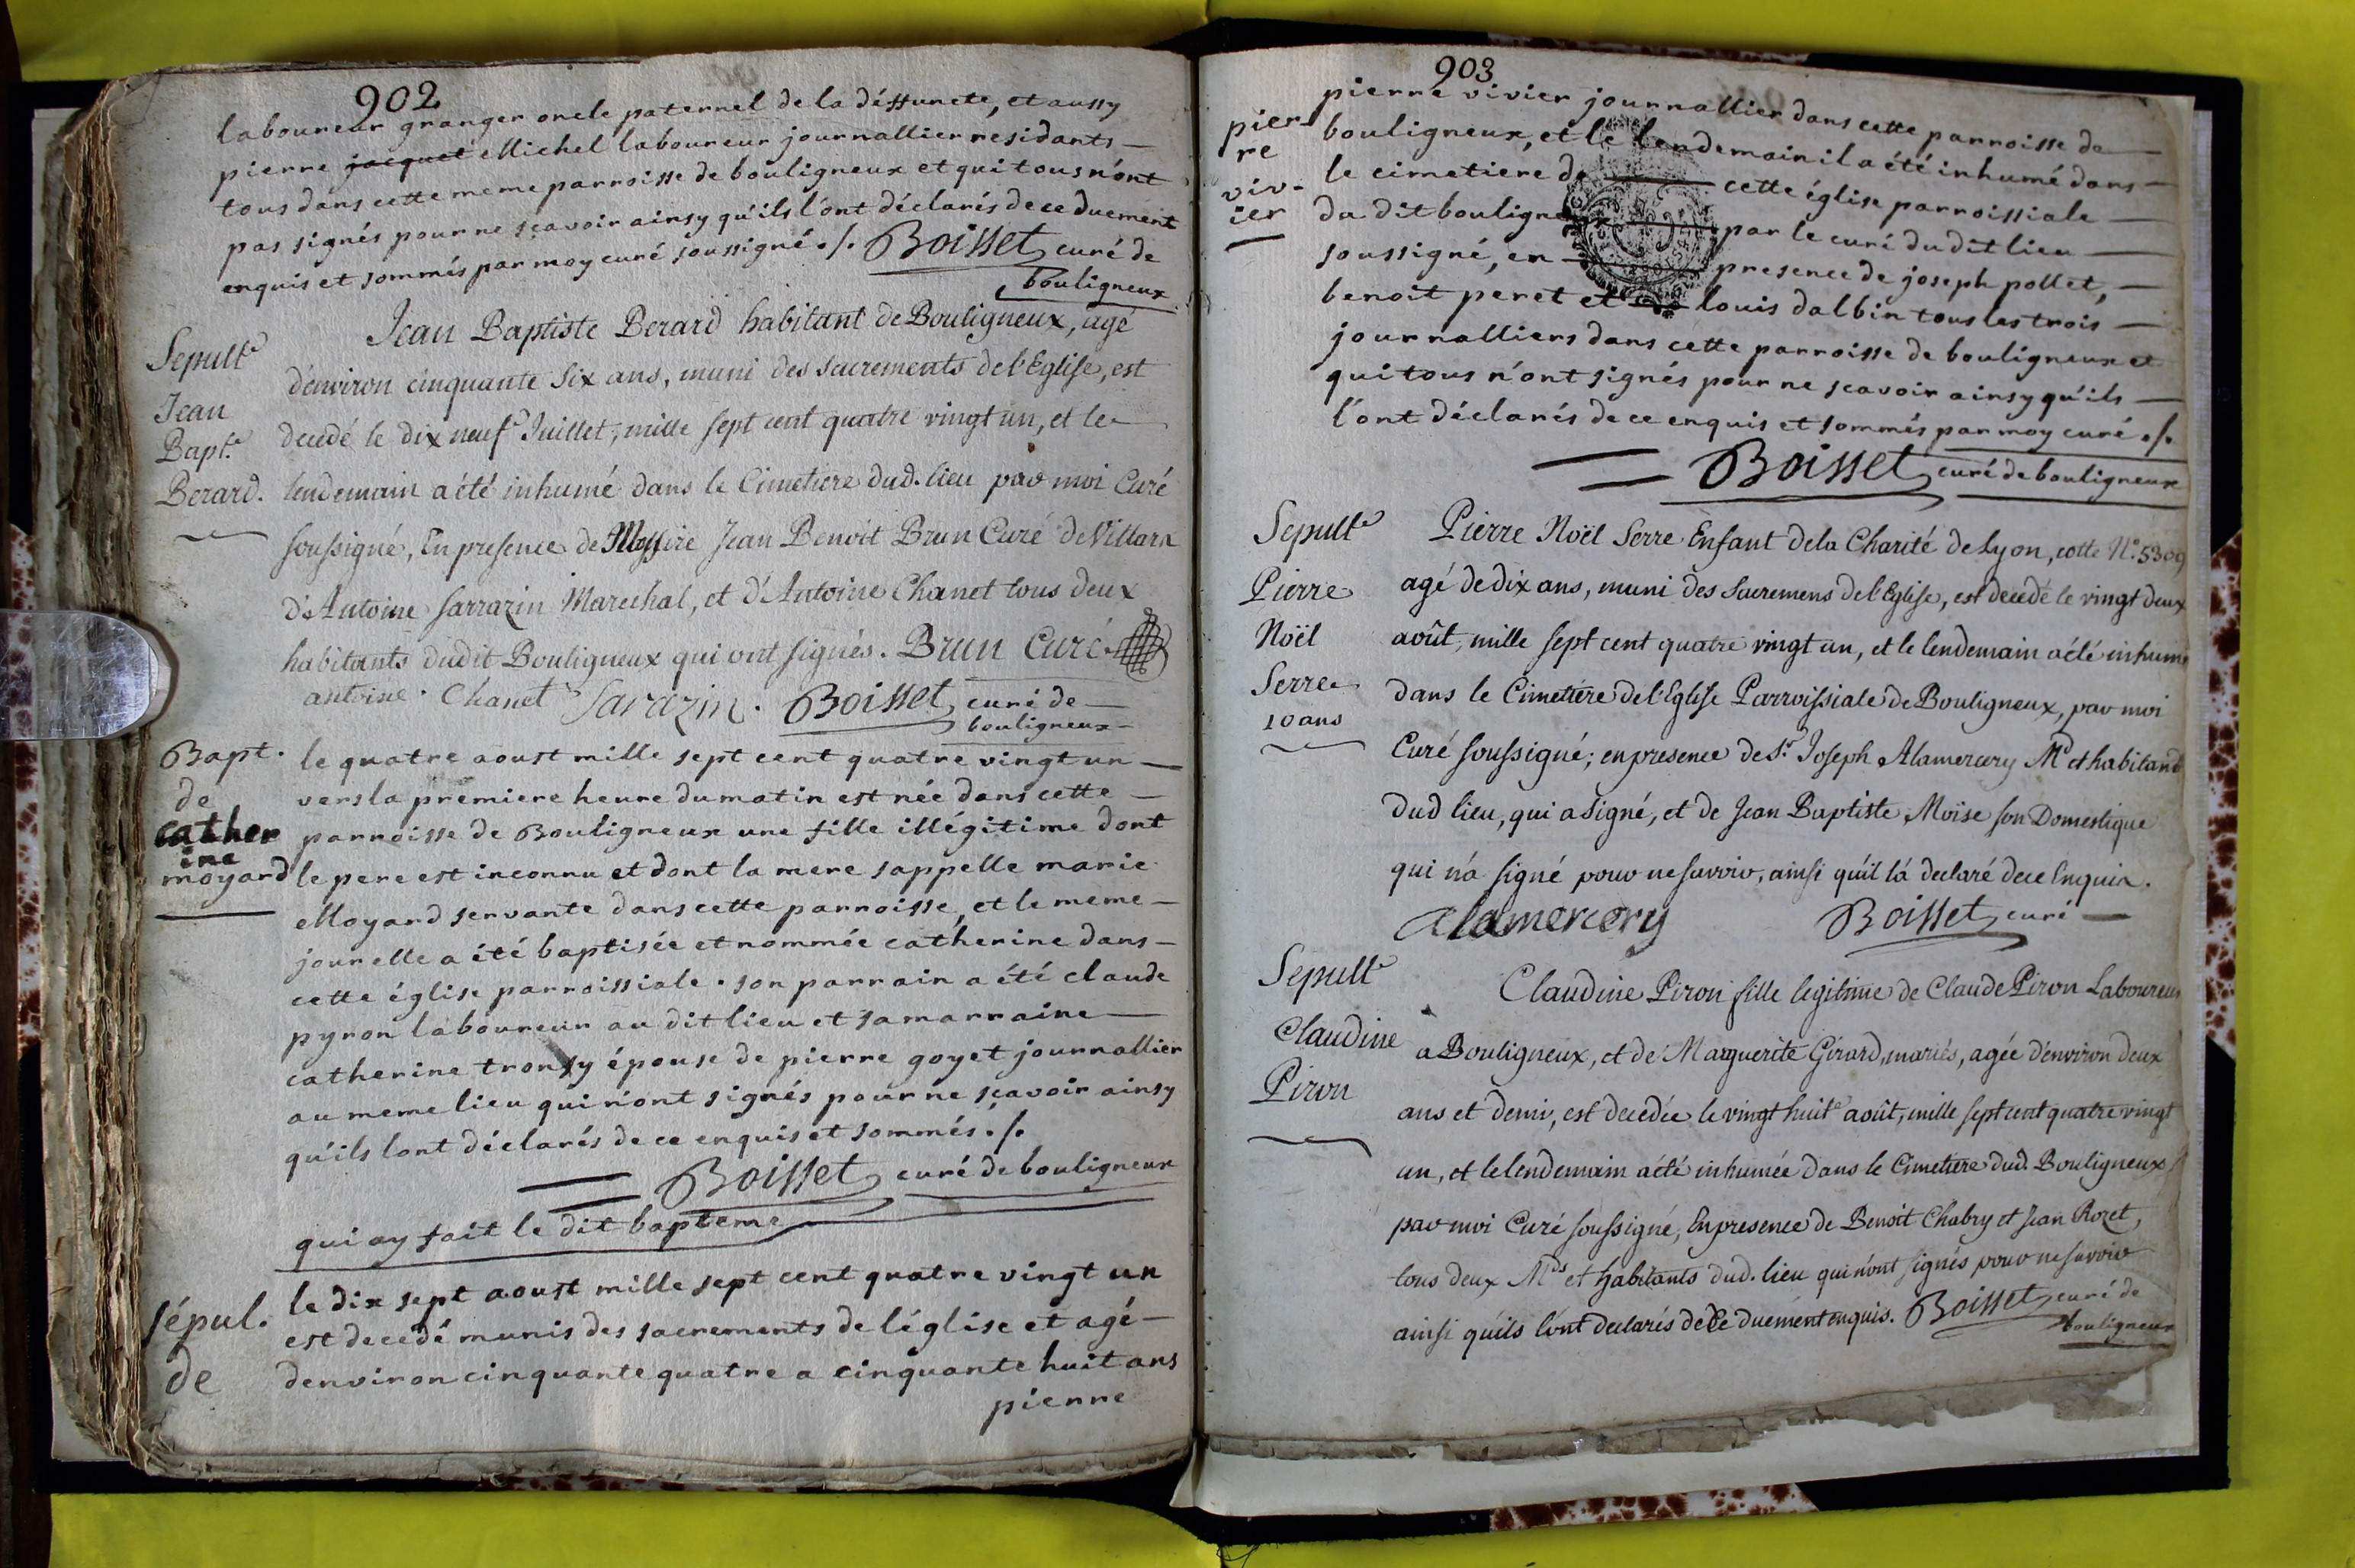 902
laboureur granger oncle paternel de la déffuncte, et aussy
pierre jacquet Michel laboureur journallier residants
tous dans cette meme parroisse de bouligneux et qui tous n'ont
pas signés pour ne scavoir ainsy qu'ils l'ont déclarés de ce duement
enquis et sommés par moy curé soussigné ./. Boisset curé de
bouligneux
Sepult.e
Jean
Bapt.e
Berard.
Jean Baptiste Berard habitant de Bouligneux, agé
d'environ cinquante six ans, muni des sacrements de l'Eglise, est
decedé le dix neuf Juillet, mille sept cent quatre vingt un, et le
lendemain a été inhumé dans le Cimetiere dud. lieu par moi Curé
soussigné, En presence de Messire Jean Benoit Brun Curé de Villars
d'Antoine Sarrazin Marechal, et d'Antoine Chanet tous deux
habitants dudit Bouligneux qui ont signés. Brun Curé
antoine Chanet Sarazin. Boisset curé de
bouligneux
Bapt.
de
cather
ine
moyard
le quatre aoust mille sept cent quatre vingt un
vers la premiere heure du matin est née dans cette
parroisse de Bouligneux une fille illégitime dont
le pere est inconnu et dont la mere sappelle marie
Moyard servante dans cette parroisse, et le meme
jour elle a été baptisée et nommée catherine dans
cette église parroissiale. son parrain a été claude
pyron laboureur au dit lieu et sa marraine
catherine tronsy épouse de pierre goyet journallier
au meme lieu qui n'ont signés pour ne scavoir ainsy
qu'ils lont déclarés de ce enquis et sommés ./.
Boisset curé de bouligneux
qui ay fait le dit bapteme
sépul.
de
le dix sept aoust mille sept cent quatre vingt un
est decedé munis des sacrements de léglise et agé
denviron cinquante quatre a cinquante huit ans
pierre
903
pier
re
viv-
ier
pierre vivier journallier dans cette parroisse de
bouligneux, et le lendemain il a été inhumé dans
le cimetiere de cette église parroissiale
du dit bouligneux par le curé du dit lieu
soussigné, en presence de joseph pollet,
benoit peret et louis dalbin tous les trois
journalliers dans cette parroisse de bouligneux et
qui tous n'ont signés pour ne scavoir ainsy qu'ils
l'ont déclarés de ce enquis et sommés par moy curé ./.
Boisset curé de bouligneux
Sepult.e
Pierre
Noël
Serre
10 ans
Pierre Noël Serre Enfant de la Charité de Lyon, cotte N.o 5309
agé de dix ans, muni des Sacremens de l'Eglise, est decedé le vingt deux
août, mille sept cent quatre vingt un, et le lendemain a été inhumé
dans le Cimetiere de l'Eglise Parroissiale de Bouligneux, par moi
Curé soussigné; en presence de S.r Joseph Alamercery M.d et habitant
dud lieu, qui a signé, et de Jean Baptiste Moïse son Domestique
qui n'a signé pour ne savoir, ainsi qu'il l'a declaré de ce Enquis.
Alamercery Boisset curé
Sepult.e
Claudine
Piron
Claudine Piron fille legitime de Claude Piron Laboureur
a Bouligneux, et de Marguerite Girard, mariés, agée d'environ deux
ans et demi, est decedée le vingt huit août, mille sept cent quatre vingt
un, et le lendemain a été inhumée dans le Cimetiere dud. Bouligneux
par moi Curé soussigné, En presence de Benoit Chabry et Jean Rozet,
tous deux M.ds et habitants dud. lieu qui n'ont signés pour ne savoir
ainsi qu'ils l'ont declarés de ce duement enquis. Boisset curé de
bouligneux